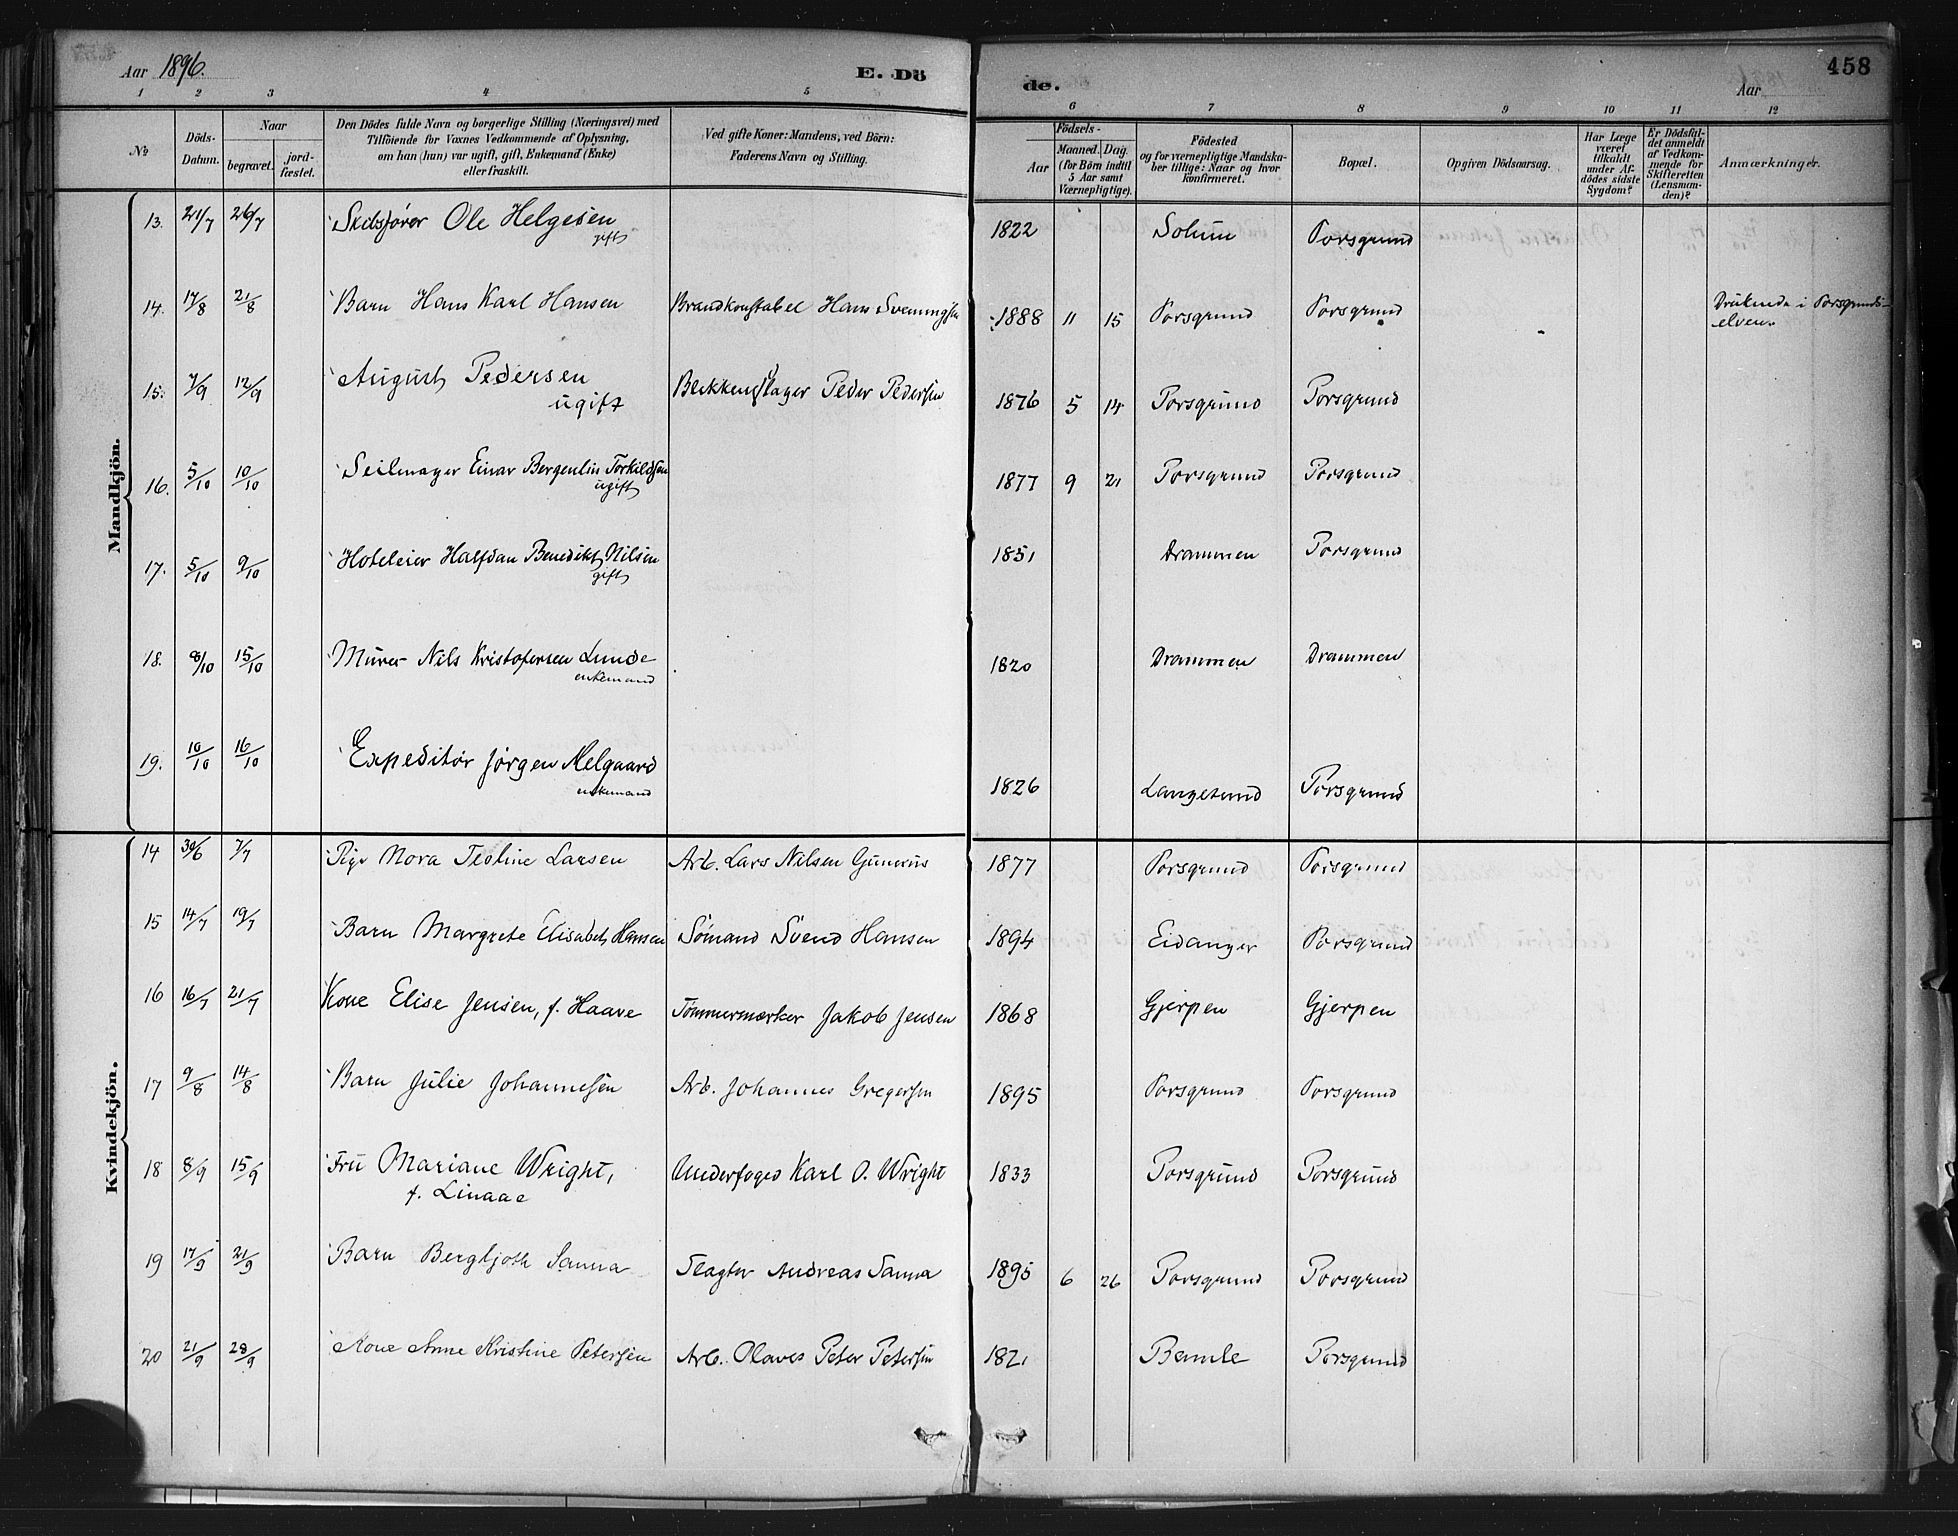 Aar 1896.
E. Dö
de.
Aar
458
1 2 3 4 5 6 7 8 9 10 11 12
№
Döds-
Datum.
Naar
begravet.
jord-
fæstet.
Den Dödes fulde Navn og borgerlige Stilling (Næringsvei) med
Tilföiende for Voxnes Vedkommende af Oplysning,
om han (hun) var ugift, gift, Enkemand (Enke)
eller fraskilt.
Ved gifte Koner: Mandens, ved Börn:
Faderens Navn og Stilling.
Födsels-
Aar
Maaned.
Dag.
(for Börn indtil
5 Aar samt
Værnepligtige).
Födested
og for værnepligtige Mandska-
ber tillige: Naar og hvor
konfirmeret.
Bopæl.
Opgiven Dödsaarsag.
Har Læge
været
tilkaldt
under Af-
dödes sidste
Sygdom?
Er Dödsfal-
det anmeldt
af Vedkom-
mende for
Skifteretten
(Lensman-
den)?
Anmærkninger.
Mandkjön.
13. 21/7 26/7 Skibsfører Ole Helgesen 1822 Solum Porsgrund
gift
14. 17/8 21/8 Barn Hans Karl Hansen Brandkonstabel Hans Svenningsen 1888 11 15 Porsgrund Porsgrund Druknede i Porsgrunds-
elven.
15. 7/9 12/9 August Pedersen Blikkenslager Peder Pedersen 1876 5 14 Porsgrund Porsgrund
ugift
16. 5/10 10/10 Seilmager Einar Bergentin Torkildsen 1877 9 21 Porsgrund Porsgrund
ugift
17. 5/10 9/10 Hoteleier Halfdan Benedikt Nilsen 1851 Drammen Porsgrund
gift
18. 8/10 15/10 Murer Nils Kristofersen Lunde 1820 Drammen Drammen
enkemand
19. 10/10 16/10 Expeditør Jørgen Melgaard 1826 Langesund Porsgrund
enkemand
Kvindekjön.
14 30/6 7/7 Pige Nora Teoline Larsen Arb. Lars Nilsen Gunerius 1877 Porsgrund Porsgrund
15 14/7 19/7 Barn Margrete Elisabeth Hansen Sömand Svend Hansen 1894 Eidanger Porsgrund
16 16/7 21/7 Kone Elise Jensen, f. Haave Tömmermærker Jakob Jensen 1868 Gjerpen Gjerpen
17 9/8 14/8 Barn Julie Johannesen Arb. Johannes Gregersen 1895 Porsgrund Porsgrund
18 8/9 15/9 Fru Mariane Wright, Underfoged Karl O. Wright 1833 Porsgrund Porsgrund
f. Linaae
19 17/9 21/9 Barn Bergljoth Sanna Slagter Andreas Sanna 1895 6 26 Porsgrund Porsgrund
20 21/9 28/9 Kone Anne Kristine Petersen Arb. Olaves Peter Petersen 1821 Bamle Porsgrund